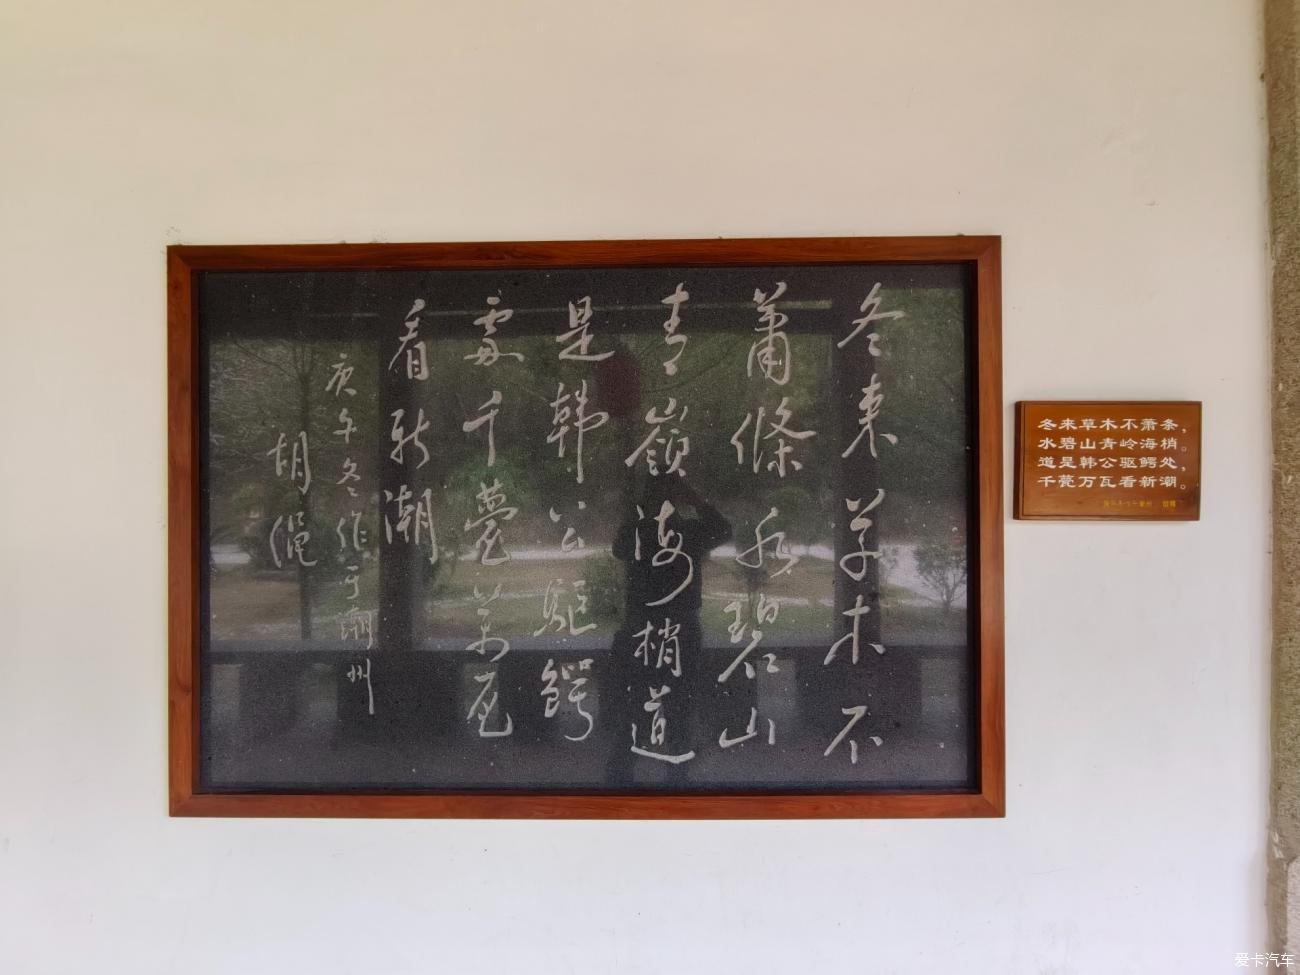 冬来草木不
萧條水碧山
青嶺海梢道
是韩公驱鳄
處千甍萬瓦
看新潮
庚午冬作于潮州
胡绳
冬来草木不萧条，
水碧山青岭海梢。
道是韩公驱鳄处，
千甍万瓦看新潮。
爱卡汽车